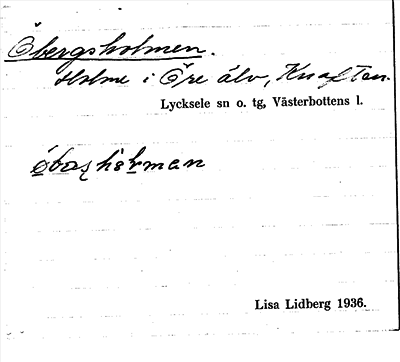 Öbergsholmen.
Holme i Öre älv, Knaften.
Lycksele sn o. tg, Västerbottens l.
Lisa Lidberg 1936.